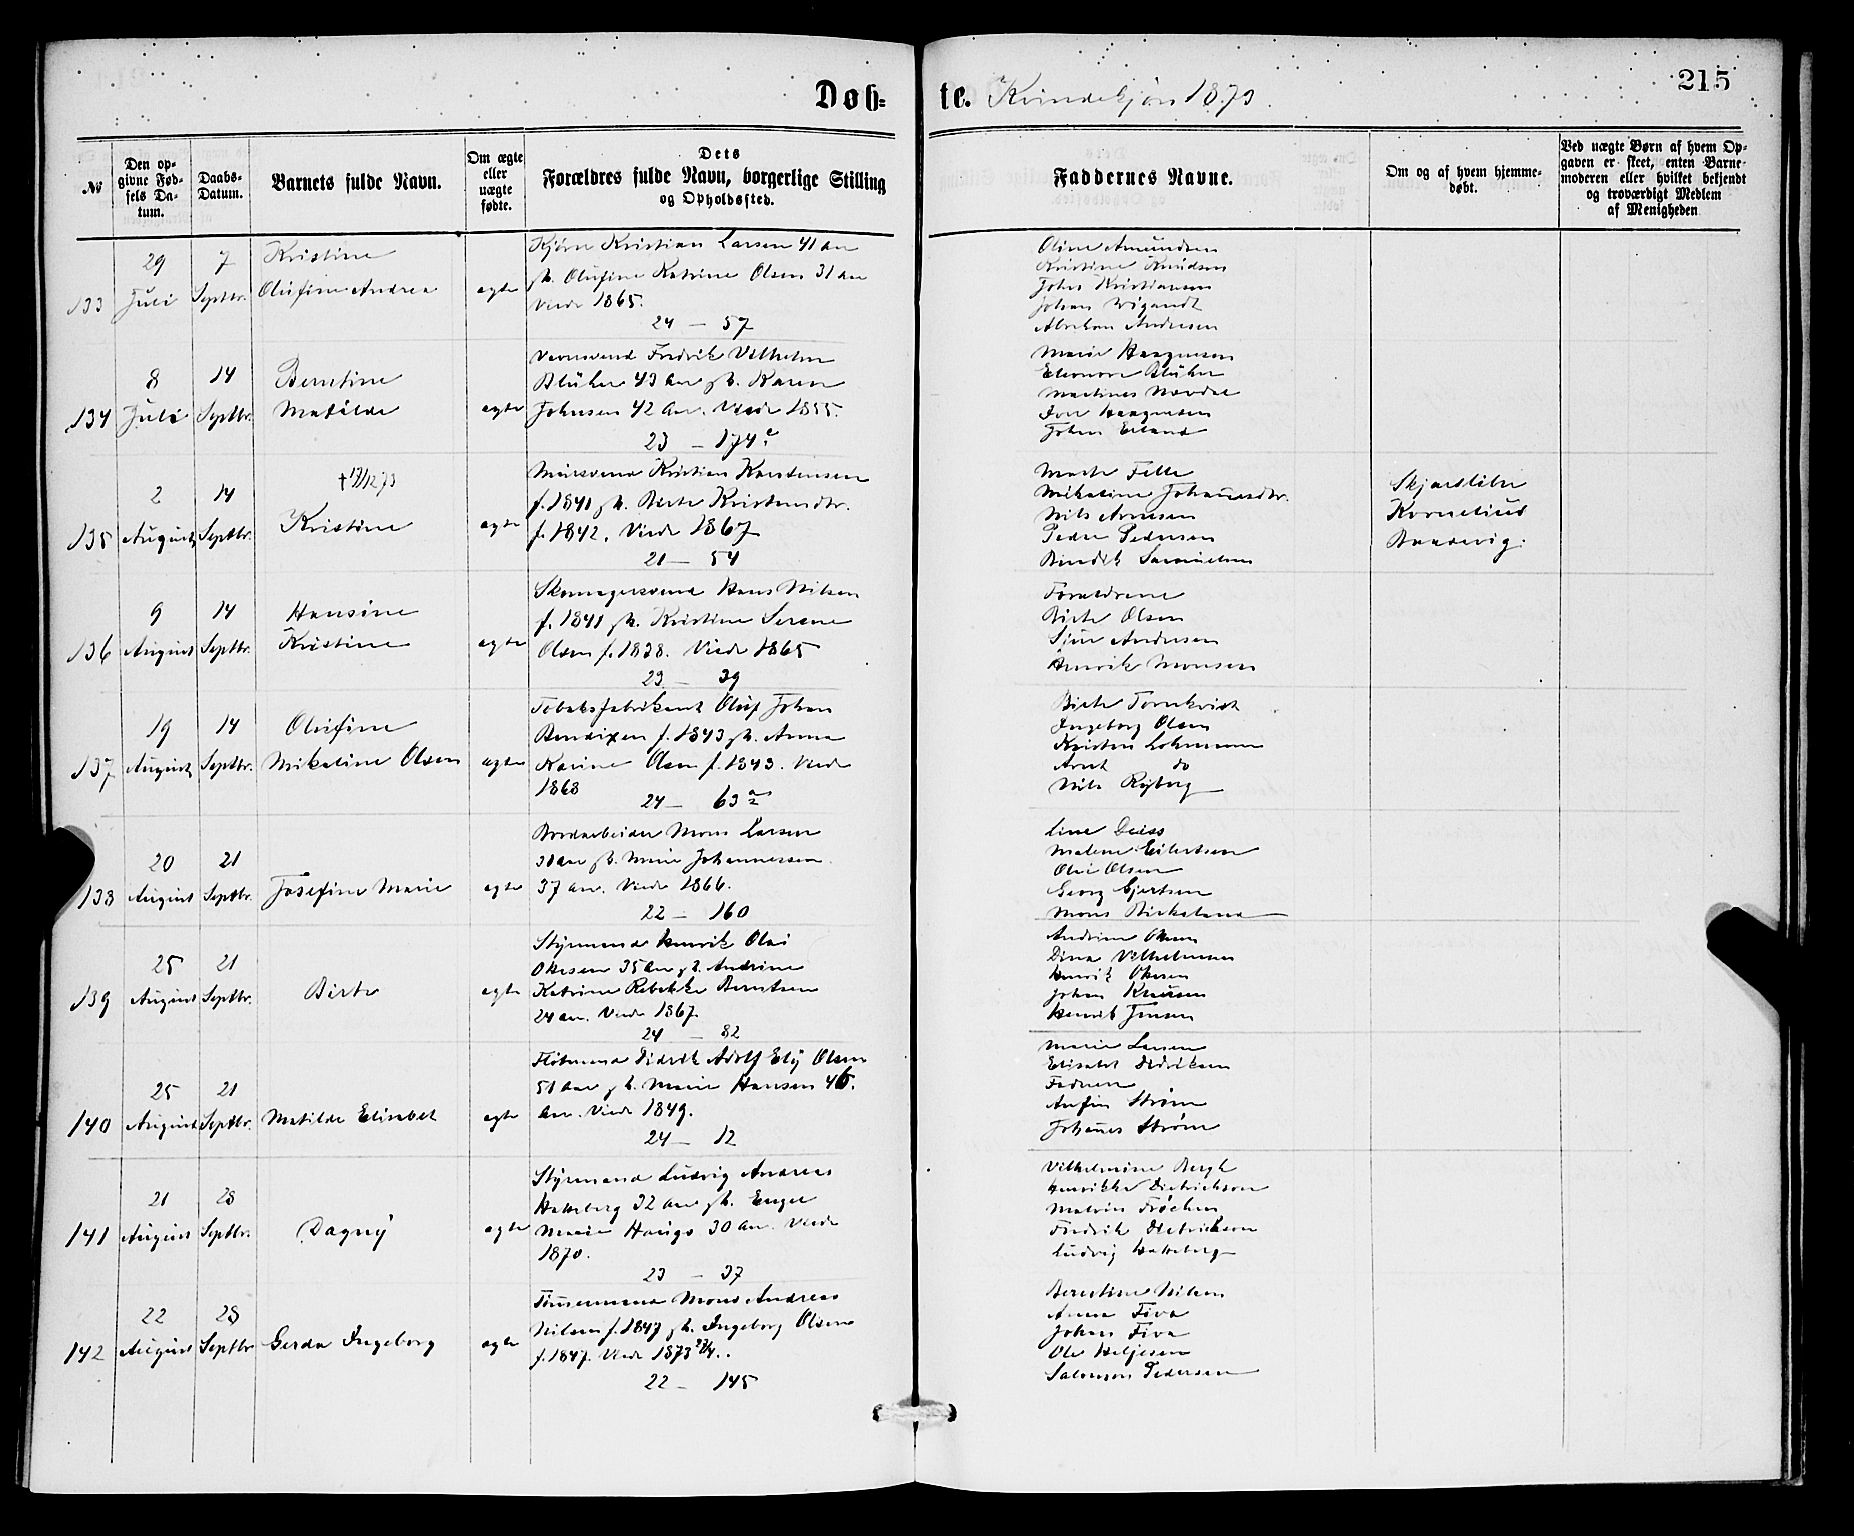 Døb= te. Kvindekjøn 1873.
215
№
Den op-
givne Fød-
sels Da-
tum.
Daabs-
Datum.
Barnets fulde Navn.
Om ægte
eller
uægte
fødte.
Dets
Forældres fulde Navn, borgerlige Stilling
og Opholdssted.
Faddernes Navne.
Om og af hvem hjemme-
døbt.
Ved uægte Børn af hvem Op-
gaven er skeet, enten Barne-
moderen eller hvilket bekjendt
og troværdigt Medlem
af Menigheden
133
29
Juli
7
Septbr.
Kristine
Olufine Andrea
ægte
Kristian Larsen 41 Aar
Olufine Katrine Olsen 31 Aar
Viede 1865.
24 — 57
Oline Amundsen
Kristine Knudsen
Johs Kristiansen
Johan Wigandt
Abraham Andresen
134
8
Juli
14
Septbr.
Berntine
Matilde
ægte
Fredrik Vilhelm
Blüher 43 Aar Karen
Johnsen 42 Aar. Viede 1855.
23 — 174 c
Marie Haagensen
Eleonora Blüher
Martines
Iver Haagensen
Johan Erland
135
2
August
14
Septbr.
† 17/12 73
Kristine
ægte
Mursvend Kristian Karstensen
f. 1841 Birte Kristensdtr.
f. 1842. Viede 1867
21 — 54
Marte Felle
Mikaline Johannesdtr.
Nils Arnesen
Peder Pedersen
Bendik Samuelsen
Kornelius
136
9
August
14
Septbr.
Hansine
Kristine
ægte
Skomagersvend Hans Nilsen
f. 1841 Kristine Serene
Olsen f. 1838. Viede 1865
23 — 39
Forældrene
Birte Olsen
Sine Andersen
Henrik Monsen
137
19
August
14
Septbr.
Olufine
Mikaline Olsen
ægte
Tobaksfabrikant Oluf Johan
Bendixen f. 1843 Anna
Karine Olsen f. 1843. Viede
1868
24 — 63 a
Birte Tornkvist
Ingeborg Olsen
Kristen Lohmann
Arnt do
Nils Ryberg
138
20
August
21
Septbr.
Josefine Marie
ægte
Bordarbeider Mons Larsen
Marie Johannessen
37 Aar. Viede 1866.
22 — 160
Line Deiss
Malene Eilertsen
Olai Olsen
Georg Gjertsen
Mons Birkeland
139
25
August
21
Septbr.
Birte
ægte
Styrmand Henrik Olai
Okesen 35 Aar Andrine
Katrine Rebekke Berntsen
24 Aar. Viede 1867.
24 — 82
Andrine Okesen
Dina Vilhelmsen
Henrik Okesen
Johan Knudsen
Henrik Jensen
140
25
August
21
Septbr.
Matilde Elisabet
ægte
Didrik Adolf Olsen
51 Aar Marie Hansen 46.
Aar. Viede 1849.
24 — 12
Marie Larsen
Elisabet Didriksen
Faderen
Anfin Strøm
Johannes Strøm
141
21
August
28
Septbr.
Dagny
ægte
Styrmand Ludvig Andreas
Hatteberg 32 Aar Engel
Marie Hauge 30 Aar. Viede
1870.
23 — 37
Vilhelmine Bergh
Henrikke Dietrichson
Malvin Frøchen
Fredrik Dietrichson
Ludvig Hatteberg
142
22
August
28
Septbr
Gerda Ingeborg
ægte
Tømmermand Mons Andreas
Nilsen f. 1847 Ingeborg Olsen
f. 1847. Viede 1873
22 — 145
Berentine Nilsen
Anna Five
Johan Five
Ole Heljesen
Salomon Pedersen